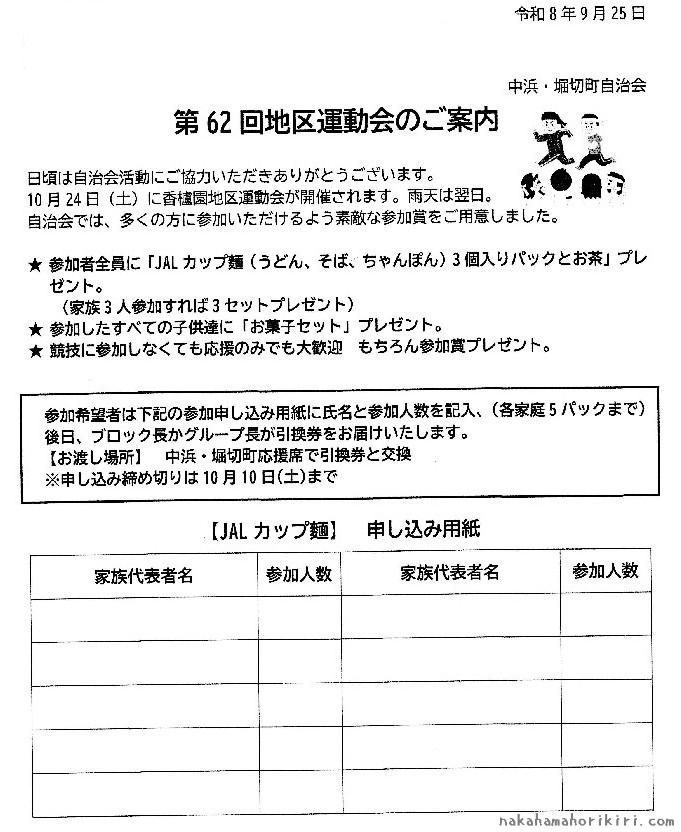 令和8年9月25日
中浜・堀切町自治会
第62回地区運動会のご案内
日頃は自治会活動にご協力いただきありがとうございます。
10月24日（土）に香櫨園地区運動会が開催されます。雨天は翌日。
自治会では、多くの方に参加いただけるよう素敵な参加賞をご用意しました。
★ 参加者全員に「JALカップ麺（うどん、そば、ちゃんぽん）3個入りパックとお茶」プレ
ゼント。
（家族3人参加すれば3セットプレゼント）
★ 参加したすべての子供達に「お菓子セット」プレゼント。
★ 競技に参加しなくても応援のみでも大歓迎　もちろん参加賞プレゼント。
参加希望者は下記の参加申し込み用紙に氏名と参加人数を記入、（各家庭5パックまで）
後日、ブロック長かグループ長が引換券をお届けいたします。
【お渡し場所】　中浜・堀切町応援席で引換券と交換
※申し込み締め切りは10月10日(土)まで
【JALカップ麺】　申し込み用紙
家族代表者名　参加人数　家族代表者名　参加人数
nakahamahorikiri.com